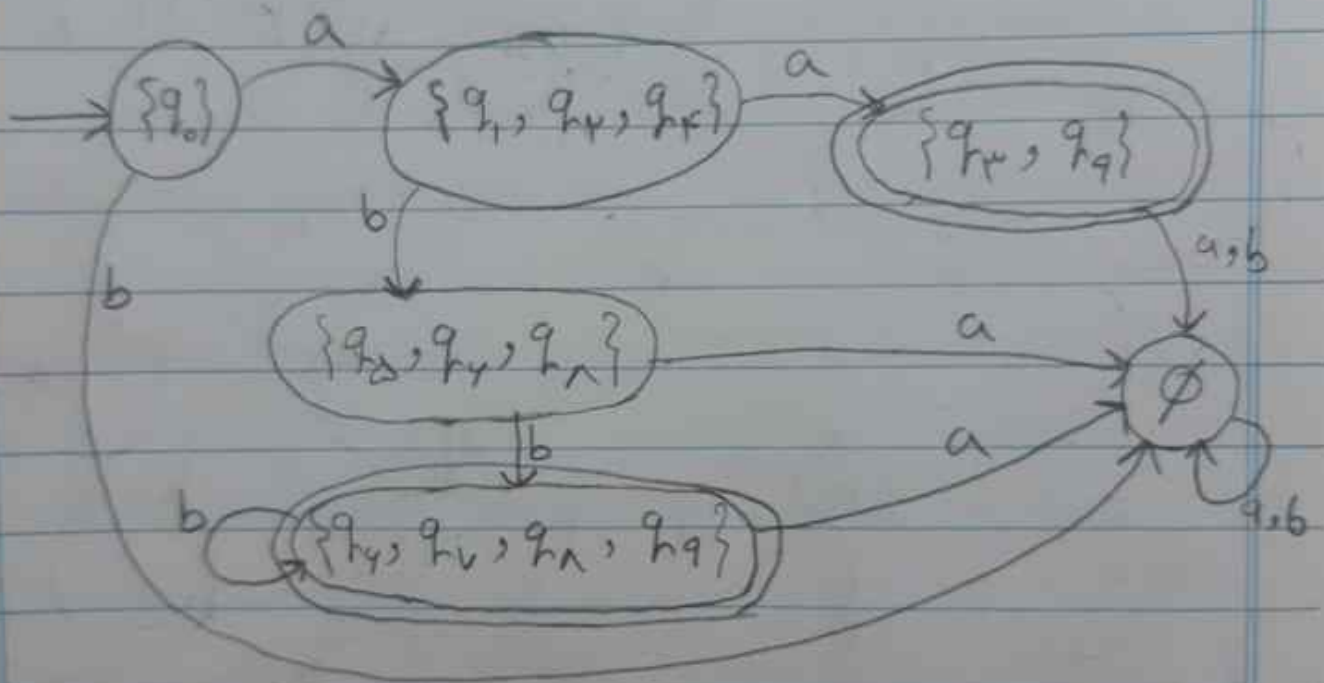 a
{q۰}
{q۱, q۲, q۴}
a
{q۳, q۹}
b
b
a,b
{q۵, q۶, q۸}
a
∅
b
a
b
{q۶, q۷, q۸, q۹}
a,b